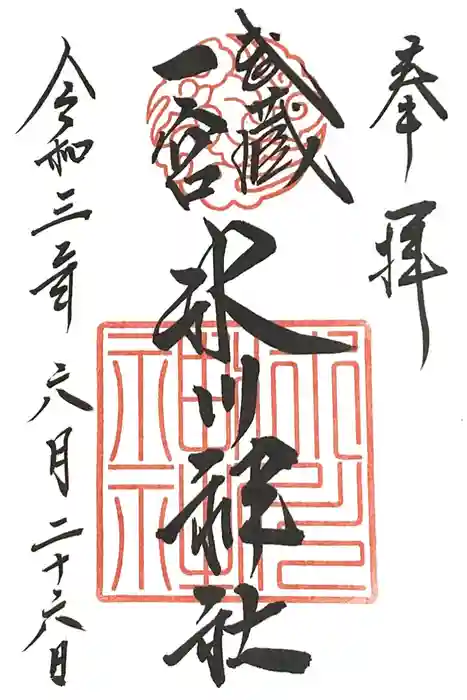 奉拝
武蔵
一宮
氷川神社
令和三年六月二十六日
氷川神社